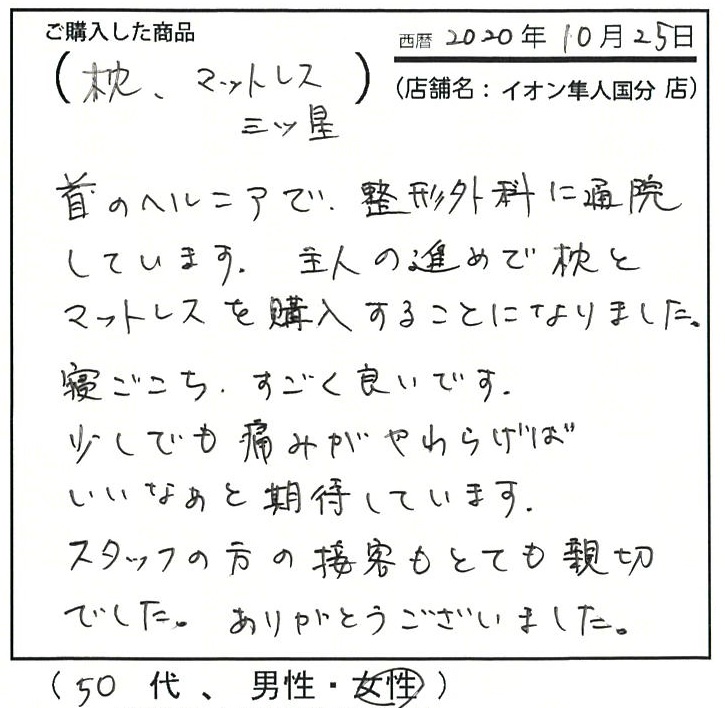 ご購入した商品
西暦 2020年 10月25日
(枕、マットレス)
(店舗名：イオン隼人国分 店)
三ツ星
首のヘルニアで、整形外科に通院
しています。主人の進めで枕と
マットレスを購入することになりました。
寝ごこち、すごく良いです。
少しでも痛みがやわらげば
いいなぁと期待しています。
スタッフの方の接客もとても親切
でした。ありがとうございました。
(50 代、男性・女性)